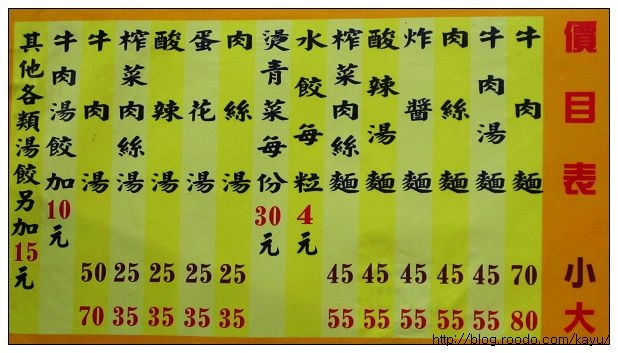 價目表 小 大
牛肉麵 70 80
牛肉湯麵 45 55
肉絲麵 45 55
炸醬麵 45 55
酸辣湯麵 45 55
榨菜肉絲麵 45 55
水餃每粒4元
燙青菜每份30元
肉絲湯 25 35
蛋花湯 25 35
酸辣湯 25 35
榨菜肉絲湯 25 35
牛肉湯 50 70
牛肉湯餃加10元
其他各類湯餃另加15元
http://blog.roodo.com/kayu/